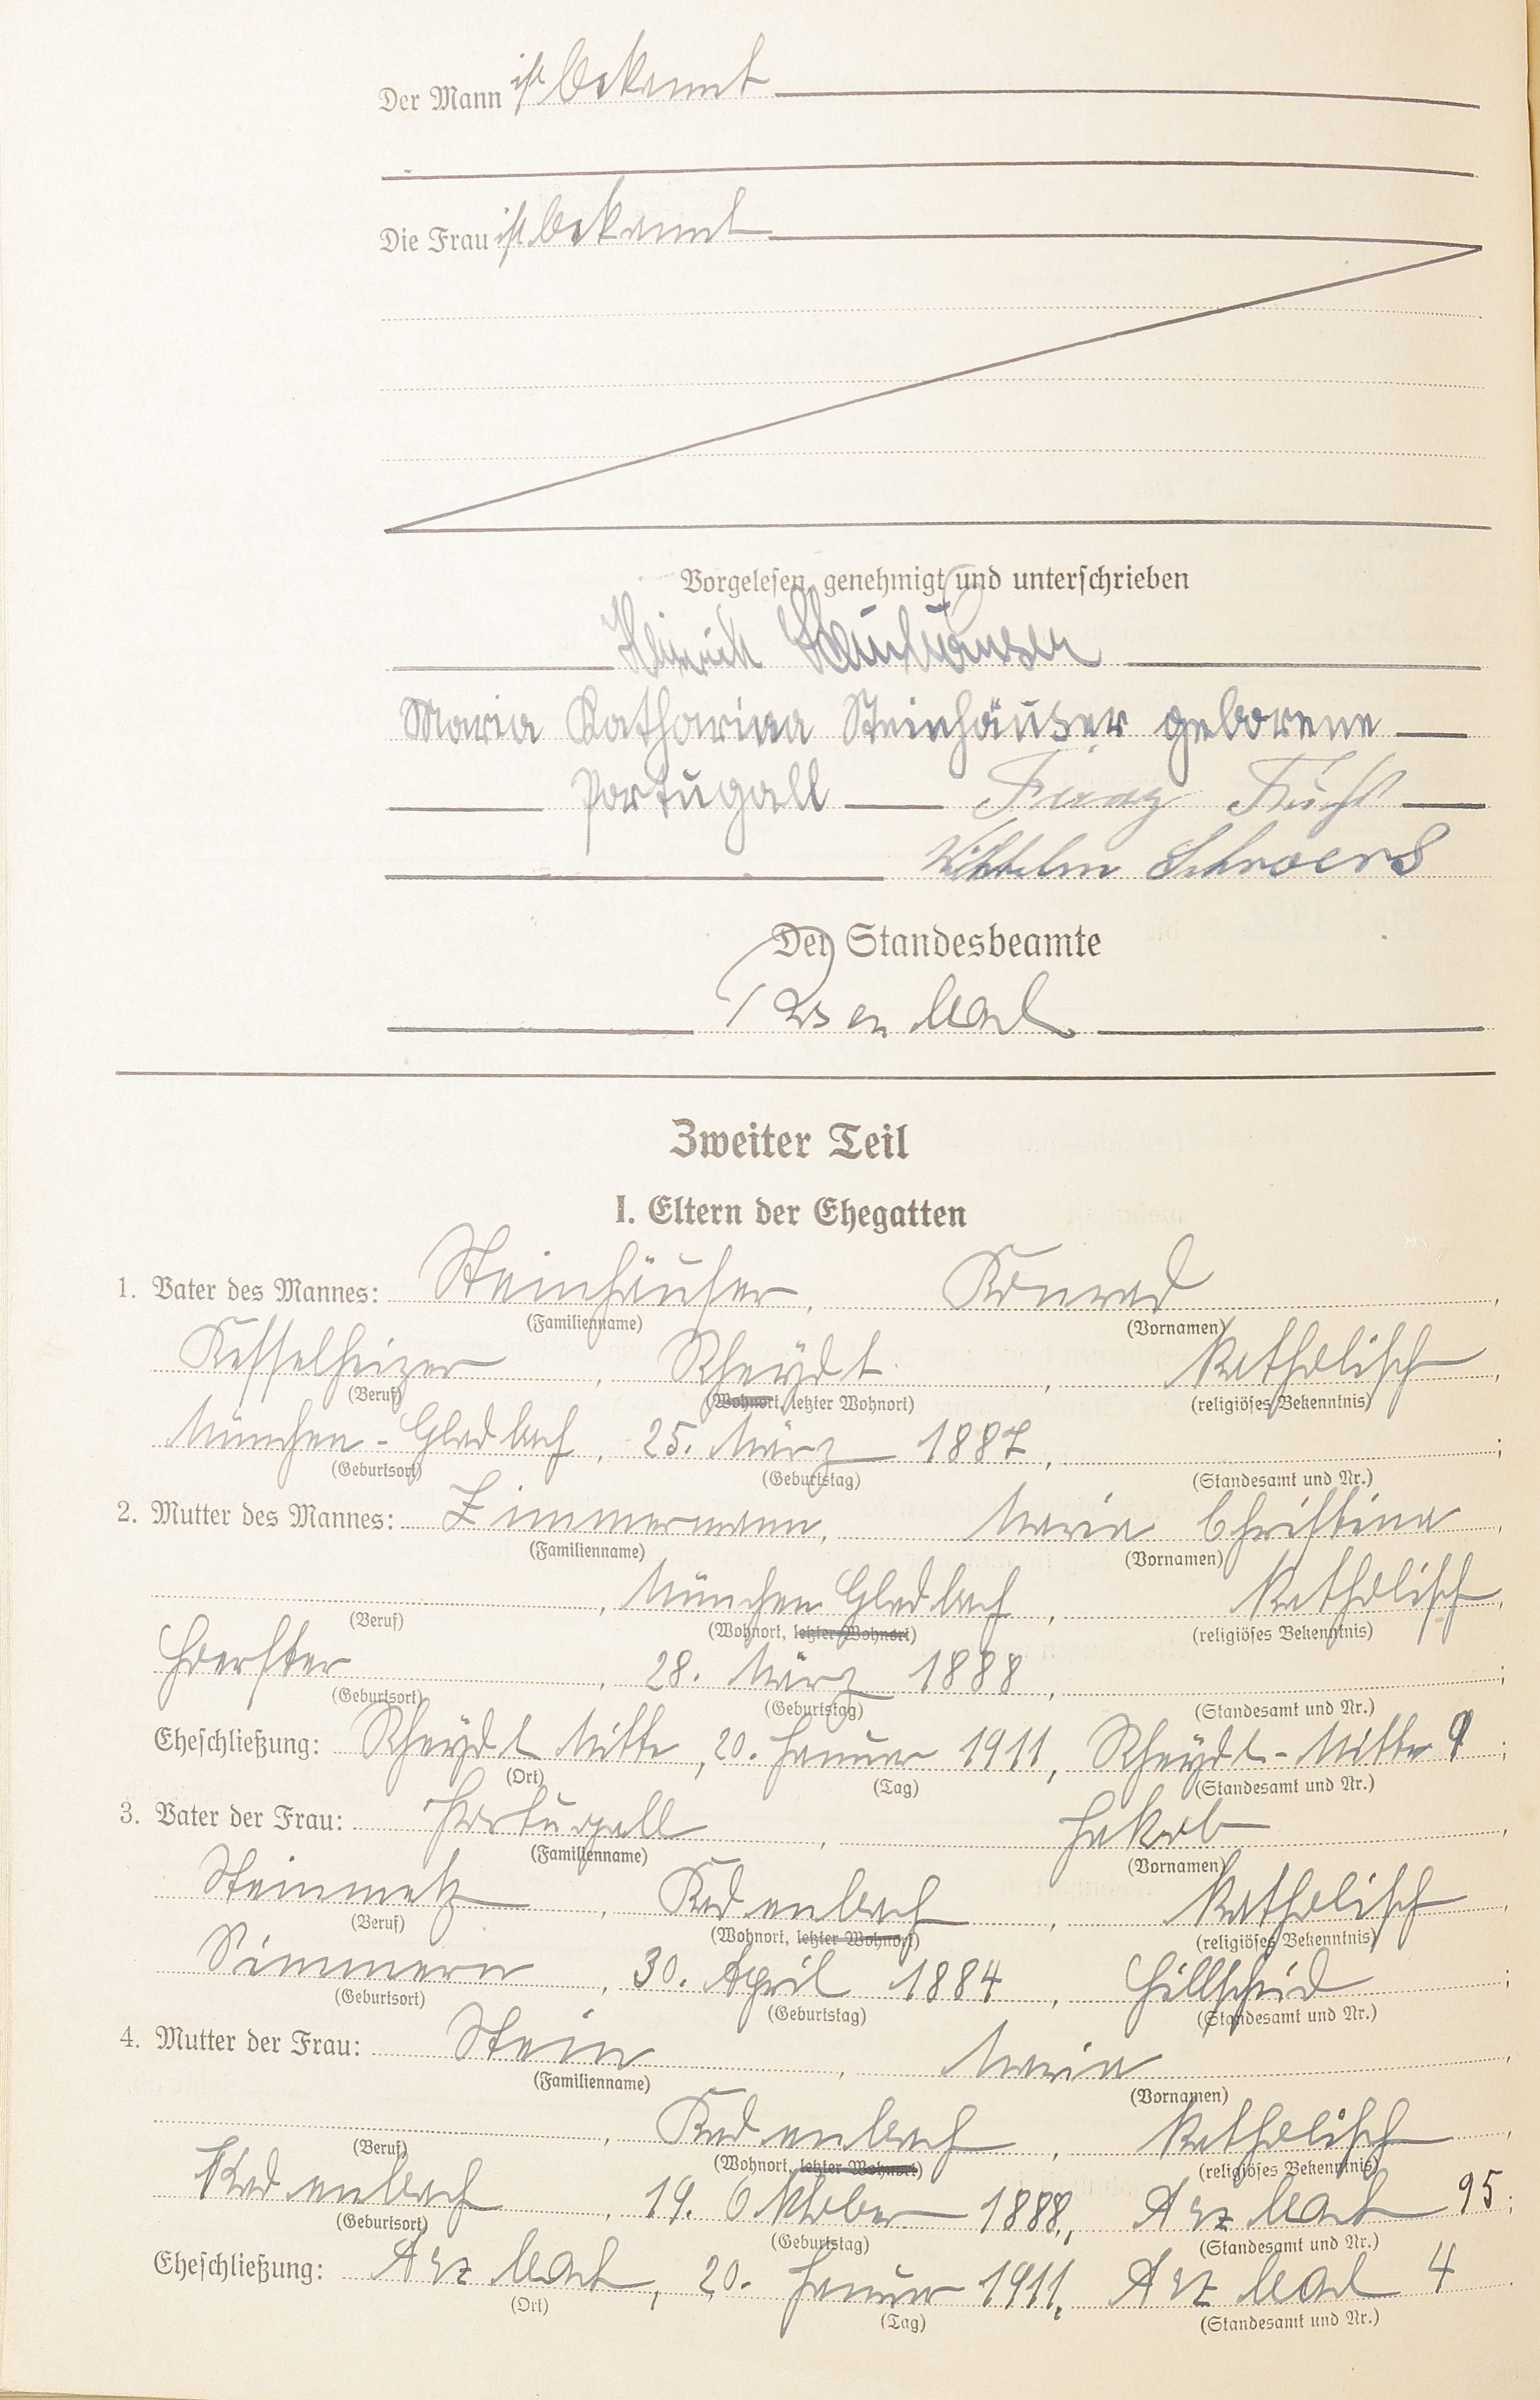 Der Mann ist bekannt
Die Frau ist bekannt
Vorgelesen, genehmigt und unterschrieben
Heinrich Steinhäuser
Maria Katharina Steinhäuser geborene
Portugall Franz
Wilhelm Schroers
Der Standesbeamte
Zweiter Teil
I. Eltern der Ehegatten
1. Vater des Mannes: Steinhäuser, Konrad,
(Familienname) (Vornamen)
Kesselheizer, Rheydt, katholisch,
(Beruf) (Wohnort, letzter Wohnort) (religiöses Bekenntnis)
München-Gladbach, 25. März 1887, ;
(Geburtsort) (Geburtstag) (Standesamt und Nr.)
2. Mutter des Mannes: Zimmermann, Maria Christina,
(Familienname) (Vornamen)
, München Gladbach, katholisch,
(Beruf) (Wohnort, letzter Wohnort) (religiöses Bekenntnis)
, 28. März 1888, ;
(Geburtsort) (Geburtstag) (Standesamt und Nr.)
Eheschließung: Rheydt Mitte, 20. Januar 1911, Rheydt-Mitte 9;
(Ort) (Tag) (Standesamt und Nr.)
3. Vater der Frau: Portugall, Jakob,
(Familienname) (Vornamen)
Steinmetz, Kadenbach, katholisch,
(Beruf) (Wohnort, letzter Wohnort) (religiöses Bekenntnis)
Simmern, 30. April 1884, Hillscheid;
(Geburtsort) (Geburtstag) (Standesamt und Nr.)
4. Mutter der Frau: Stein, Maria,
(Familienname) (Vornamen)
, Kadenbach, katholisch,
(Beruf) (Wohnort, letzter Wohnort) (religiöses Bekenntnis)
Kadenbach, 19. Oktober 1888, Arzbach 95;
(Geburtsort) (Geburtstag) (Standesamt und Nr.)
Eheschließung: Arzbach, 20. Januar 1911, Arzbach 4
(Ort) (Tag) (Standesamt und Nr.)